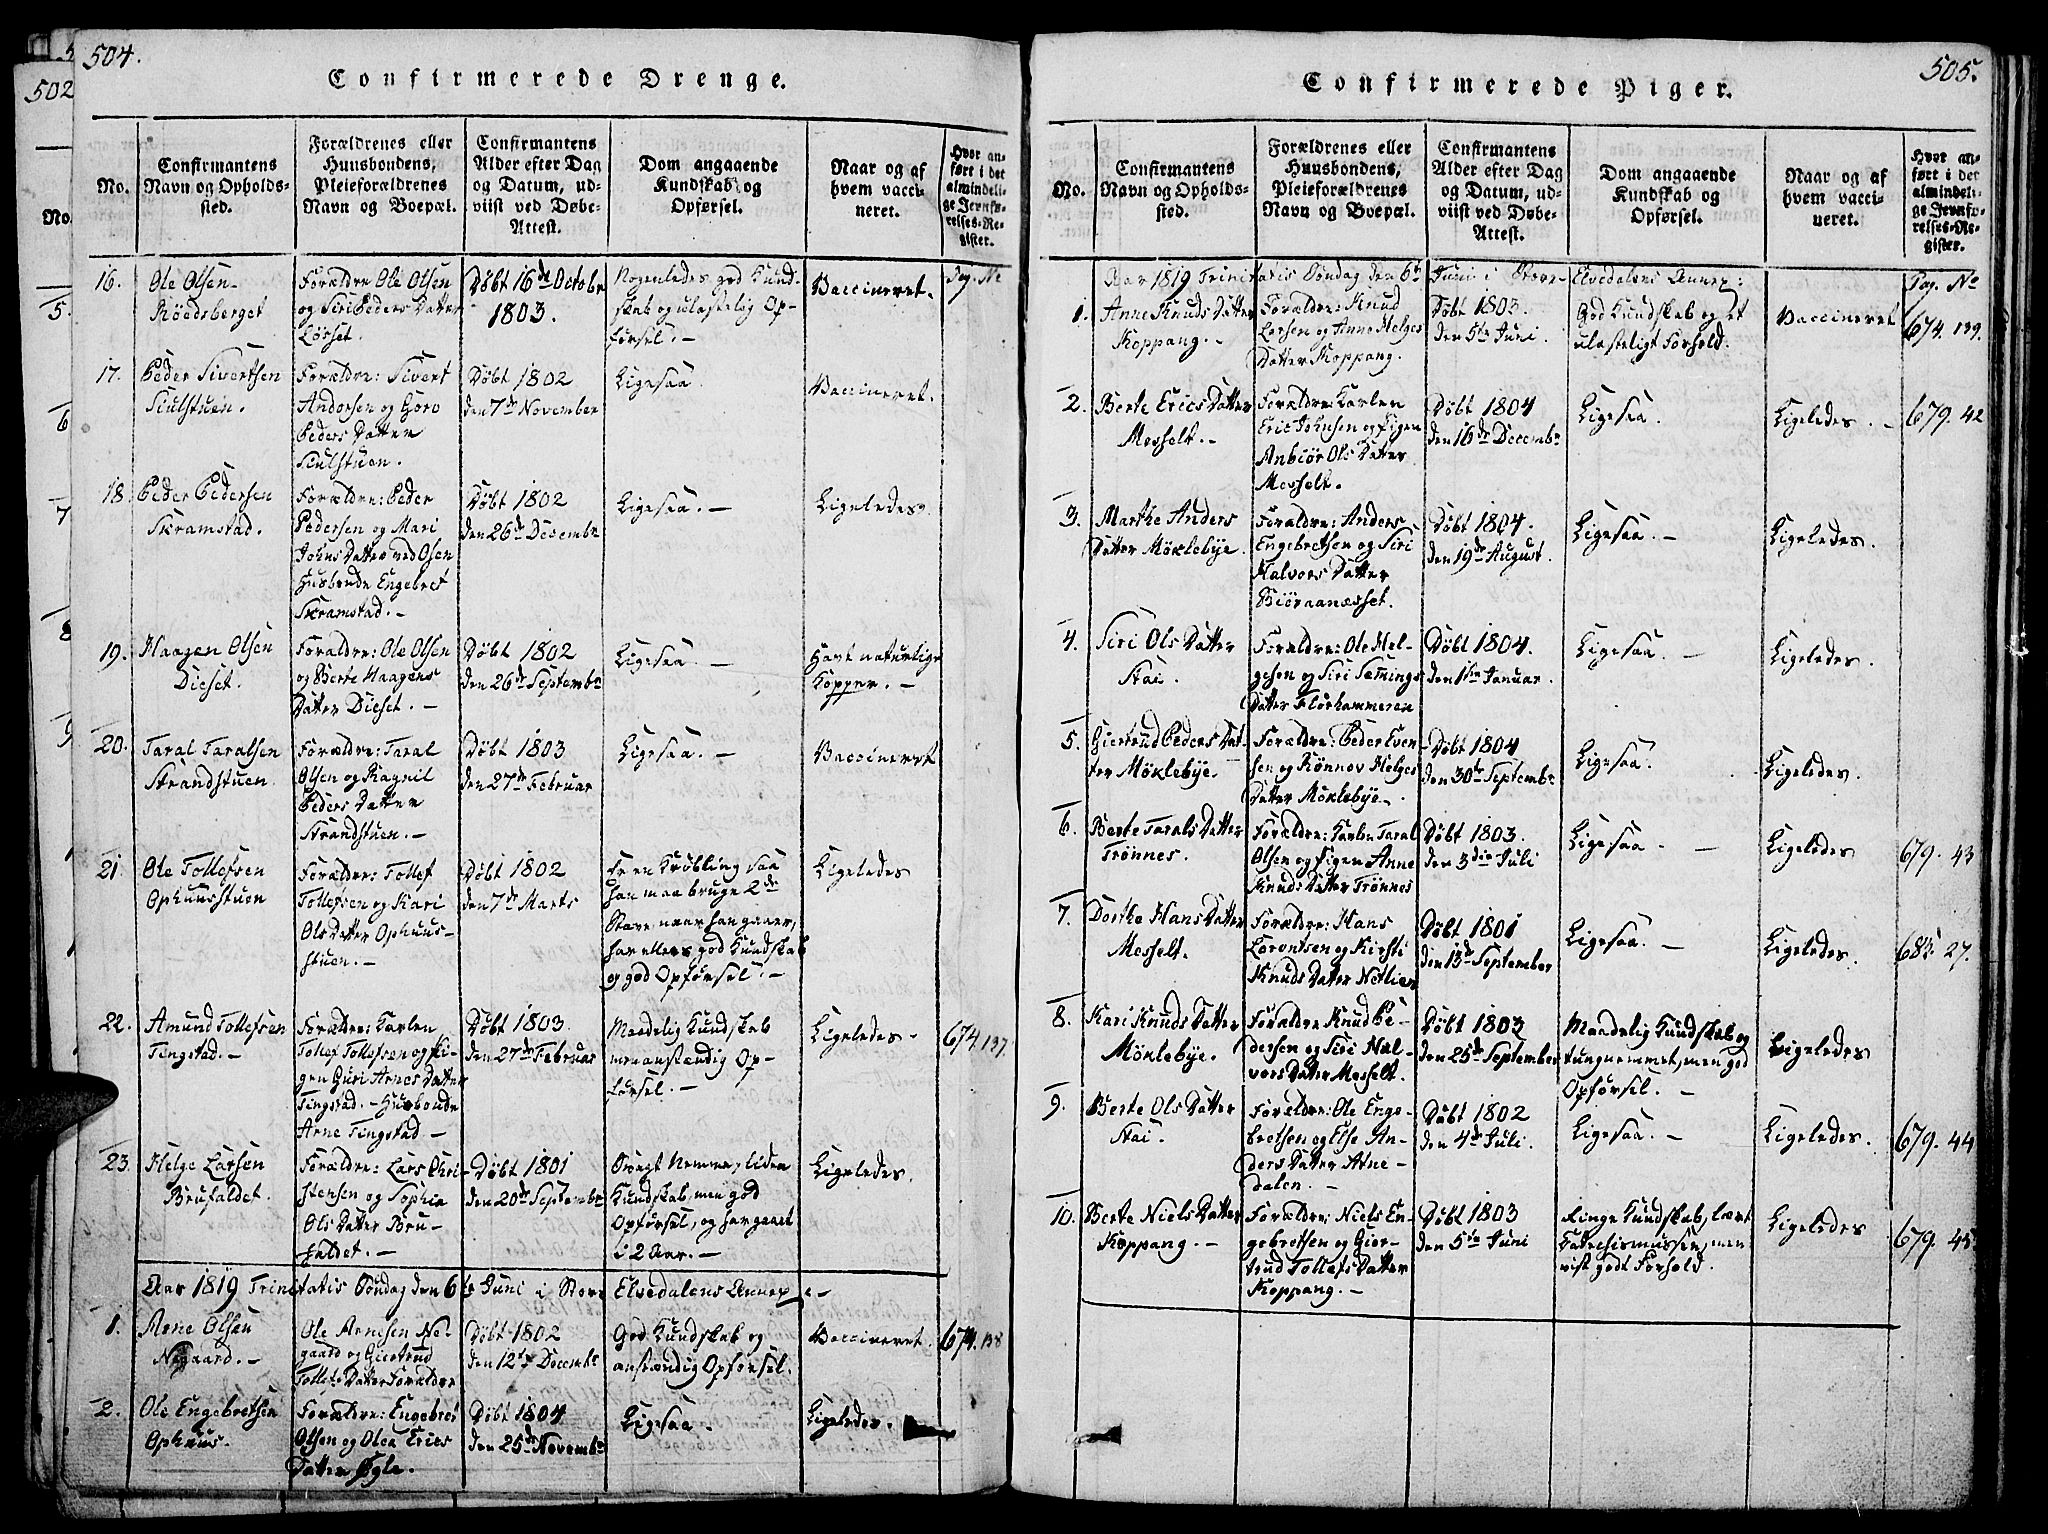 504.
502
Confirmerede Drenge.
No.
Confirmantens Navn og Opholdssted.
Forældrenes eller Huusbondens, Pleieforældrenes Navn og Boepæl.
Confirmantens Alder efter Dag og Datum, udviist ved Døbe-Attest.
Dom angaaende Kundskab og Opførsel.
Naar og af hvem vaccineret.
Hvor anført i det almindelige Jevnførelses-Register.
Pag. No
16.
Ole Olsen
Röedsberget
Forældre Ole Olsen
og Siri Peders Datter
Lörset.
Döbt 16de Octobr
1803.
Nogenledes god Kund-
skab og ulastelig Op-
försel. -
Vaccineret.
17.
Peder Sivertsen
Siulstuen.
Forældre: Sivert
Andersen og Goro
Peders Datter
Siulstuen.
Döbt 1802
den 7de November
Ligesaa.
Vaccineret.
18
Peder Pedersen
Skramstad.
Forældre: Peder
Pedersen og Mari
Johns Datter ved Osen
Husbonde Engebret
Skramstad. -
Döbt 1802
den 26de Decembr
Ligesaa. -
Ligeledes
19.
Haagen Olsen
Dieset.
Forældre: Ole Olsen
og Berte Haagens
Datter Dieset. -
Döbt 1802
den 26de Septembr
Ligesaa. -
Havt naturlige
Kopper. -
20.
Taral Taralsen
Strandstuen
Forældre: Taral
Olsen og Ragnil
Peders Datter
Strandstuen. -
Döbt 1803
den 27de Februar
Ligesaa. -
Vaccineret
21.
Ole Tollefsen
Ophuusstuen
Forældre: Tollef
Tollefsen og Kari
Ols Datter Ophuus-
stuen. -
Döbt 1802
den 7de Marts
Er en Kröbling saa
han maa bruge 2de
Stave naar han gaaer,
har ellers god Kundskab
og god Opförsel. -
Ligeledes
22.
Amund Tollefsen
Tingstad. -
Forældre: Karlen
Tollef Tollefsen og Pi-
gen Guri Arnes Datter
Tingstad. - Husbonde
Arne Tingstad -
Döbt 1803.
den 27de Februar
Maadelig Kundskab
men anstændig Op-
försel. -
Ligeledes -
674. 137.
23.
Helge Larsen
Brufaldet.
Forældre: Lars Chri-
stensen og Sophia
Ols Datter Bru-
faldet. -
Döbt 1801
den 20de Septembr
Svagt Nemme, liden
Kundskab, men god
Opförsel, og har gaaet
i 2 Aar. -
Ligeledes.
Aar 1819 Trinitatis Söndag den 6te Juni i Stor Elvedalens Annex: -
1.
Arne Olsen
Negaard. -
Ole Arnesen Ne-
gaard og Giertrud
Tollefs Datter Forældre
Döbt 1802
den 12te Decembr
God Kundskab og
anstændig Opförsel.
Vaccineret.
674. 138
2.
Ole Engebretsen
Ophuus.
Forældre: Engebret
Olsen og Olea Erics
Datter Øgle.
Döbt 1804
den 25de Novembr
Ligesaa.
Ligeledes.
505.
Confirmerede Piger.
No.
Confirmantens Navn og Opholdssted.
Forældrenes eller Huusbondens, Pleieforældrenes Navn og Boepæl.
Confirmantens Alder efter Dag og Datum, udviist ved Døbe-Attest.
Dom angaaende Kundskab og Opførsel.
Naar og af hvem vaccineret.
Hvor anført i det almindelige Jevnførelses-Register.
Aar 1819 Trinitatis Söndag den 6te Juni i Store Elvedalens Annex:
Pag. No
1.
Anne Knuds Datter
Koppang. -
Forældre: Knud
Larsen og Anne Helges
Datter Koppang.
Döbt 1803.
den 5te Juni.
God Kundskab og et
ulasteligt Forhold.
Vaccineret
674. 139.
2.
Berte Erics Datter
Messelt. -
Forældre: Karlen
Eric Johnsen og Pigen
Anbiör Ols Datter
Messelt.
Döbt 1804
den 16de Decembr
Ligesaa.
Ligeledes. -
679. 42
3.
Marthe Anders
Datter Möklebye.
Forældre: Anders
Engebretsen og Siri
Halvors Datter
Biöraanæsset.
Döbt 1804.
den 19de August.
Ligesaa. -
Ligeledes.
4.
Siri Ols Datter
Stai.
Forældre: Ole Hel-
gesen og Siri Sæmings
Datter Florhammeren
Döbt 1804.
den 1ste Januar.
Ligesaa. -
Ligeledes.
5.
Giertrud Peders Dat-
ter Möklebye.
Forældre: Peder Even-
sen og Rönnov Helges
Datter Möklebye. -
Döbt 1804
den 30te Septembr
Ligesaa.
Ligeledes.
6.
Berte Tarals Datter
Trönnes.
Forældre: Karlen Taral
Olsen og Pigen Anne
Knuds Datter Trönnes
Döbt 1803.
den 3die Juli
Ligesaa. -
Ligeledes
679. 43
7.
Dorthe Hans Datter
Messelt.
Forældre: Hans
Larentsen og Kirsti
Knuds Datter Netlien
Döbt 1801
den 13de September
Ligesaa. -
Ligeledes.
683 27.
8.
Kari Knuds Datter
Möklebye.
Forældre Knud Pe-
dersen og Siri Hal-
vors Datter Messelt.
Döbt 1803
den 25de September
Maadelig Kundskab og
tungnemmet, men god
Opförsel. -
Ligeledes
9.
Berte Ols Datter
Stai.
Forældre: Ole Enge-
bretsen og Else An-
ders Datter Atne-
dalen. -
Döbt 1802
den 4de Juli.
Ligesaa. -
Ligeledes.
679. 44
10.
Berte Niels Datter
Koppang. -
Forældre: Niels En-
gebretsen og Gier-
trud Tollefs Datter
Koppang. -
Döbt 1803
den 5te Juni
Ringe Kundskab, lært
Catechismussen, men
vist godt Forhold.
Ligeledes
679. 45